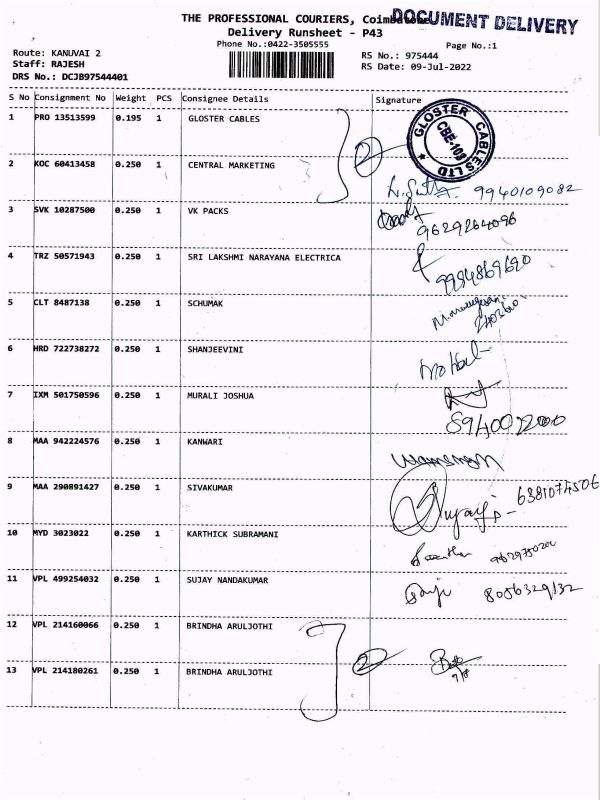 THE PROFESSIONAL COURIERS, Coimbatore
DOCUMENT DELIVERY
Delivery Runsheet - P43
Phone No.:0422-3505555
Page No.:1
Route: KANUVAI 2
RS No.: 975444
Staff: RAJESH
RS Date: 09-Jul-2022
DRS No.: DCJB97544401
S No Consignment No Weight PCS Consignee Details Signature
1 PRO 13513599 0.195 1 GLOSTER CABLES
GLOSTER CABLES LTD CBE-108
2
2 KOC 60413458 0.250 1 CENTRAL MARKETING
9940109082
3 SVK 10287500 0.250 1 VK PACKS
9629264096
4 TRZ 50571943 0.250 1 SRI LAKSHMI NARAYANA ELECTRICA
9994869690
5 CLT 8487138 0.250 1 SCHUMAK
6 HRD 722738272 0.250 1 SHANJEEVINI
7 IXM 501750596 0.250 1 MURALI JOSHUA
8940022000
8 MAA 942224576 0.250 1 KANWARI
9 MAA 290891427 0.250 1 SIVAKUMAR
6381074506
10 MYD 3023022 0.250 1 KARTHICK SUBRAMANI
11 VPL 499254032 0.250 1 SUJAY NANDAKUMAR
8056329132
12 VPL 214160066 0.250 1 BRINDHA ARULJOTHI
2
13 VPL 214180261 0.250 1 BRINDHA ARULJOTHI